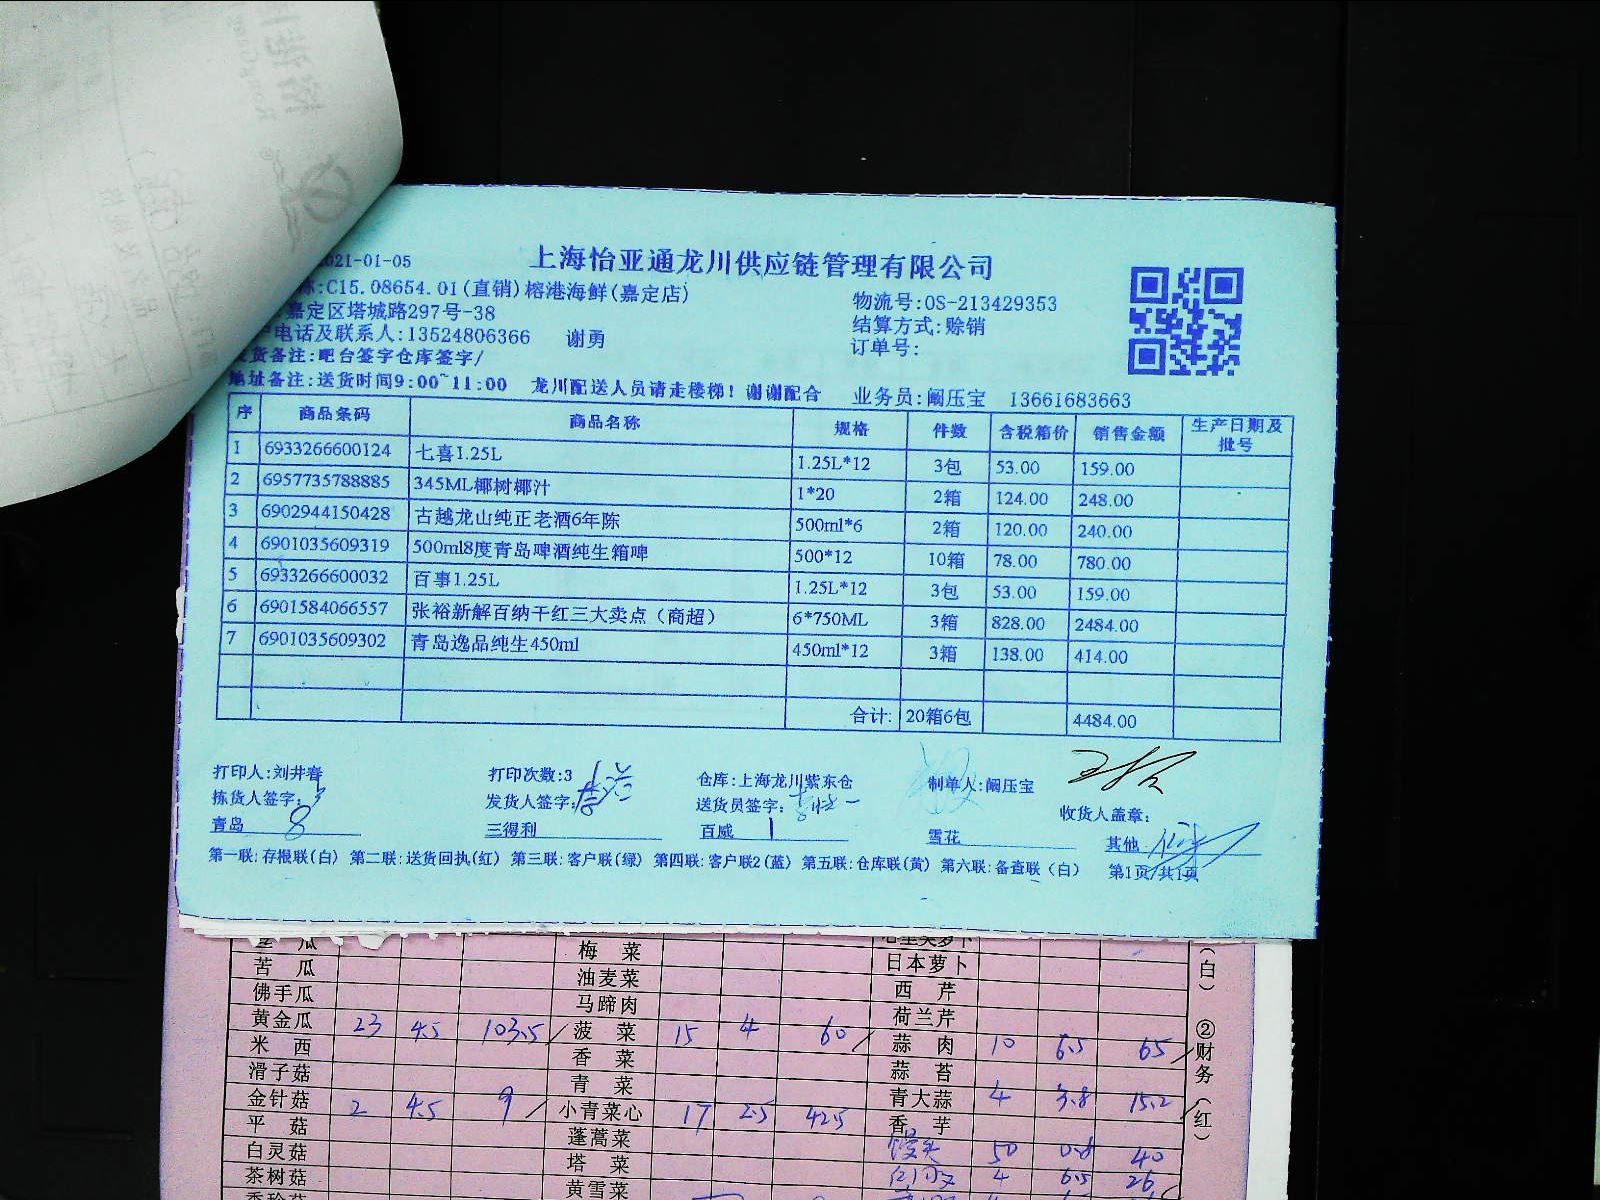 021-01-05
上海怡亚通龙川供应链管理有限公司
:C15.08654.01(直销)榕港海鲜(嘉定店)
物流号:OS-213429353
嘉定区塔城路297号-38
结算方式:赊销
电话及联系人:13524806366 谢勇
订单号:
货备注:吧台签字仓库签字/
地址备注:送货时间9:00~11:00 龙川配送人员请走楼梯！谢谢配合
业务员:阚压宝 13661683663
序 商品条码 商品名称 规格 件数 含税箱价 销售金额 生产日期及批号
1 6933266600124 七喜1.25L 1.25L*12 3包 53.00 159.00
2 6957735788885 345ML椰树椰汁 1*20 2箱 124.00 248.00
3 6902944150428 古越龙山纯正老酒6年陈 500ml*6 2箱 120.00 240.00
4 6901035609319 500ml8度青岛啤酒纯生箱啤 500*12 10箱 78.00 780.00
5 6933266600032 百事1.25L 1.25L*12 3包 53.00 159.00
6 6901584066557 张裕新解百纳干红三大卖点（商超） 6*750ML 3箱 828.00 2484.00
7 6901035609302 青岛逸品纯生450ml 450ml*12 3箱 138.00 414.00
合计: 20箱6包 4484.00
打印人:刘井春 打印次数:3 仓库:上海龙川紫东仓 制单人:阚压宝
拣货人签字: 发货人签字: 送货员签字: 收货人盖章:
青岛 8 三得利 百威 1 雪花 其他
第一联:存根联(白) 第二联:送货回执(红) 第三联:客户联(绿) 第四联:客户联2(蓝) 第五联:仓库联(黄) 第六联:备查联（白） 第1页/共1页
梅菜
苦瓜 油麦菜 日本萝卜
佛手瓜 马蹄肉 西芹
黄金瓜 23 4.5 103.5 菠菜 15 4 60 荷兰芹
米西 香菜 蒜肉 10 6.5 65
滑子菇 青菜 蒜苔
金针菇 2 4.5 9 小青菜心 17 2.5 42.5 青大蒜 4 3.8 15.2
平菇 蓬蒿菜 香芋
白灵菇 塔菜 馒头 50 0.8 40
茶树菇 黄雪菜 4 6.5 26
（白）
②财务（红）